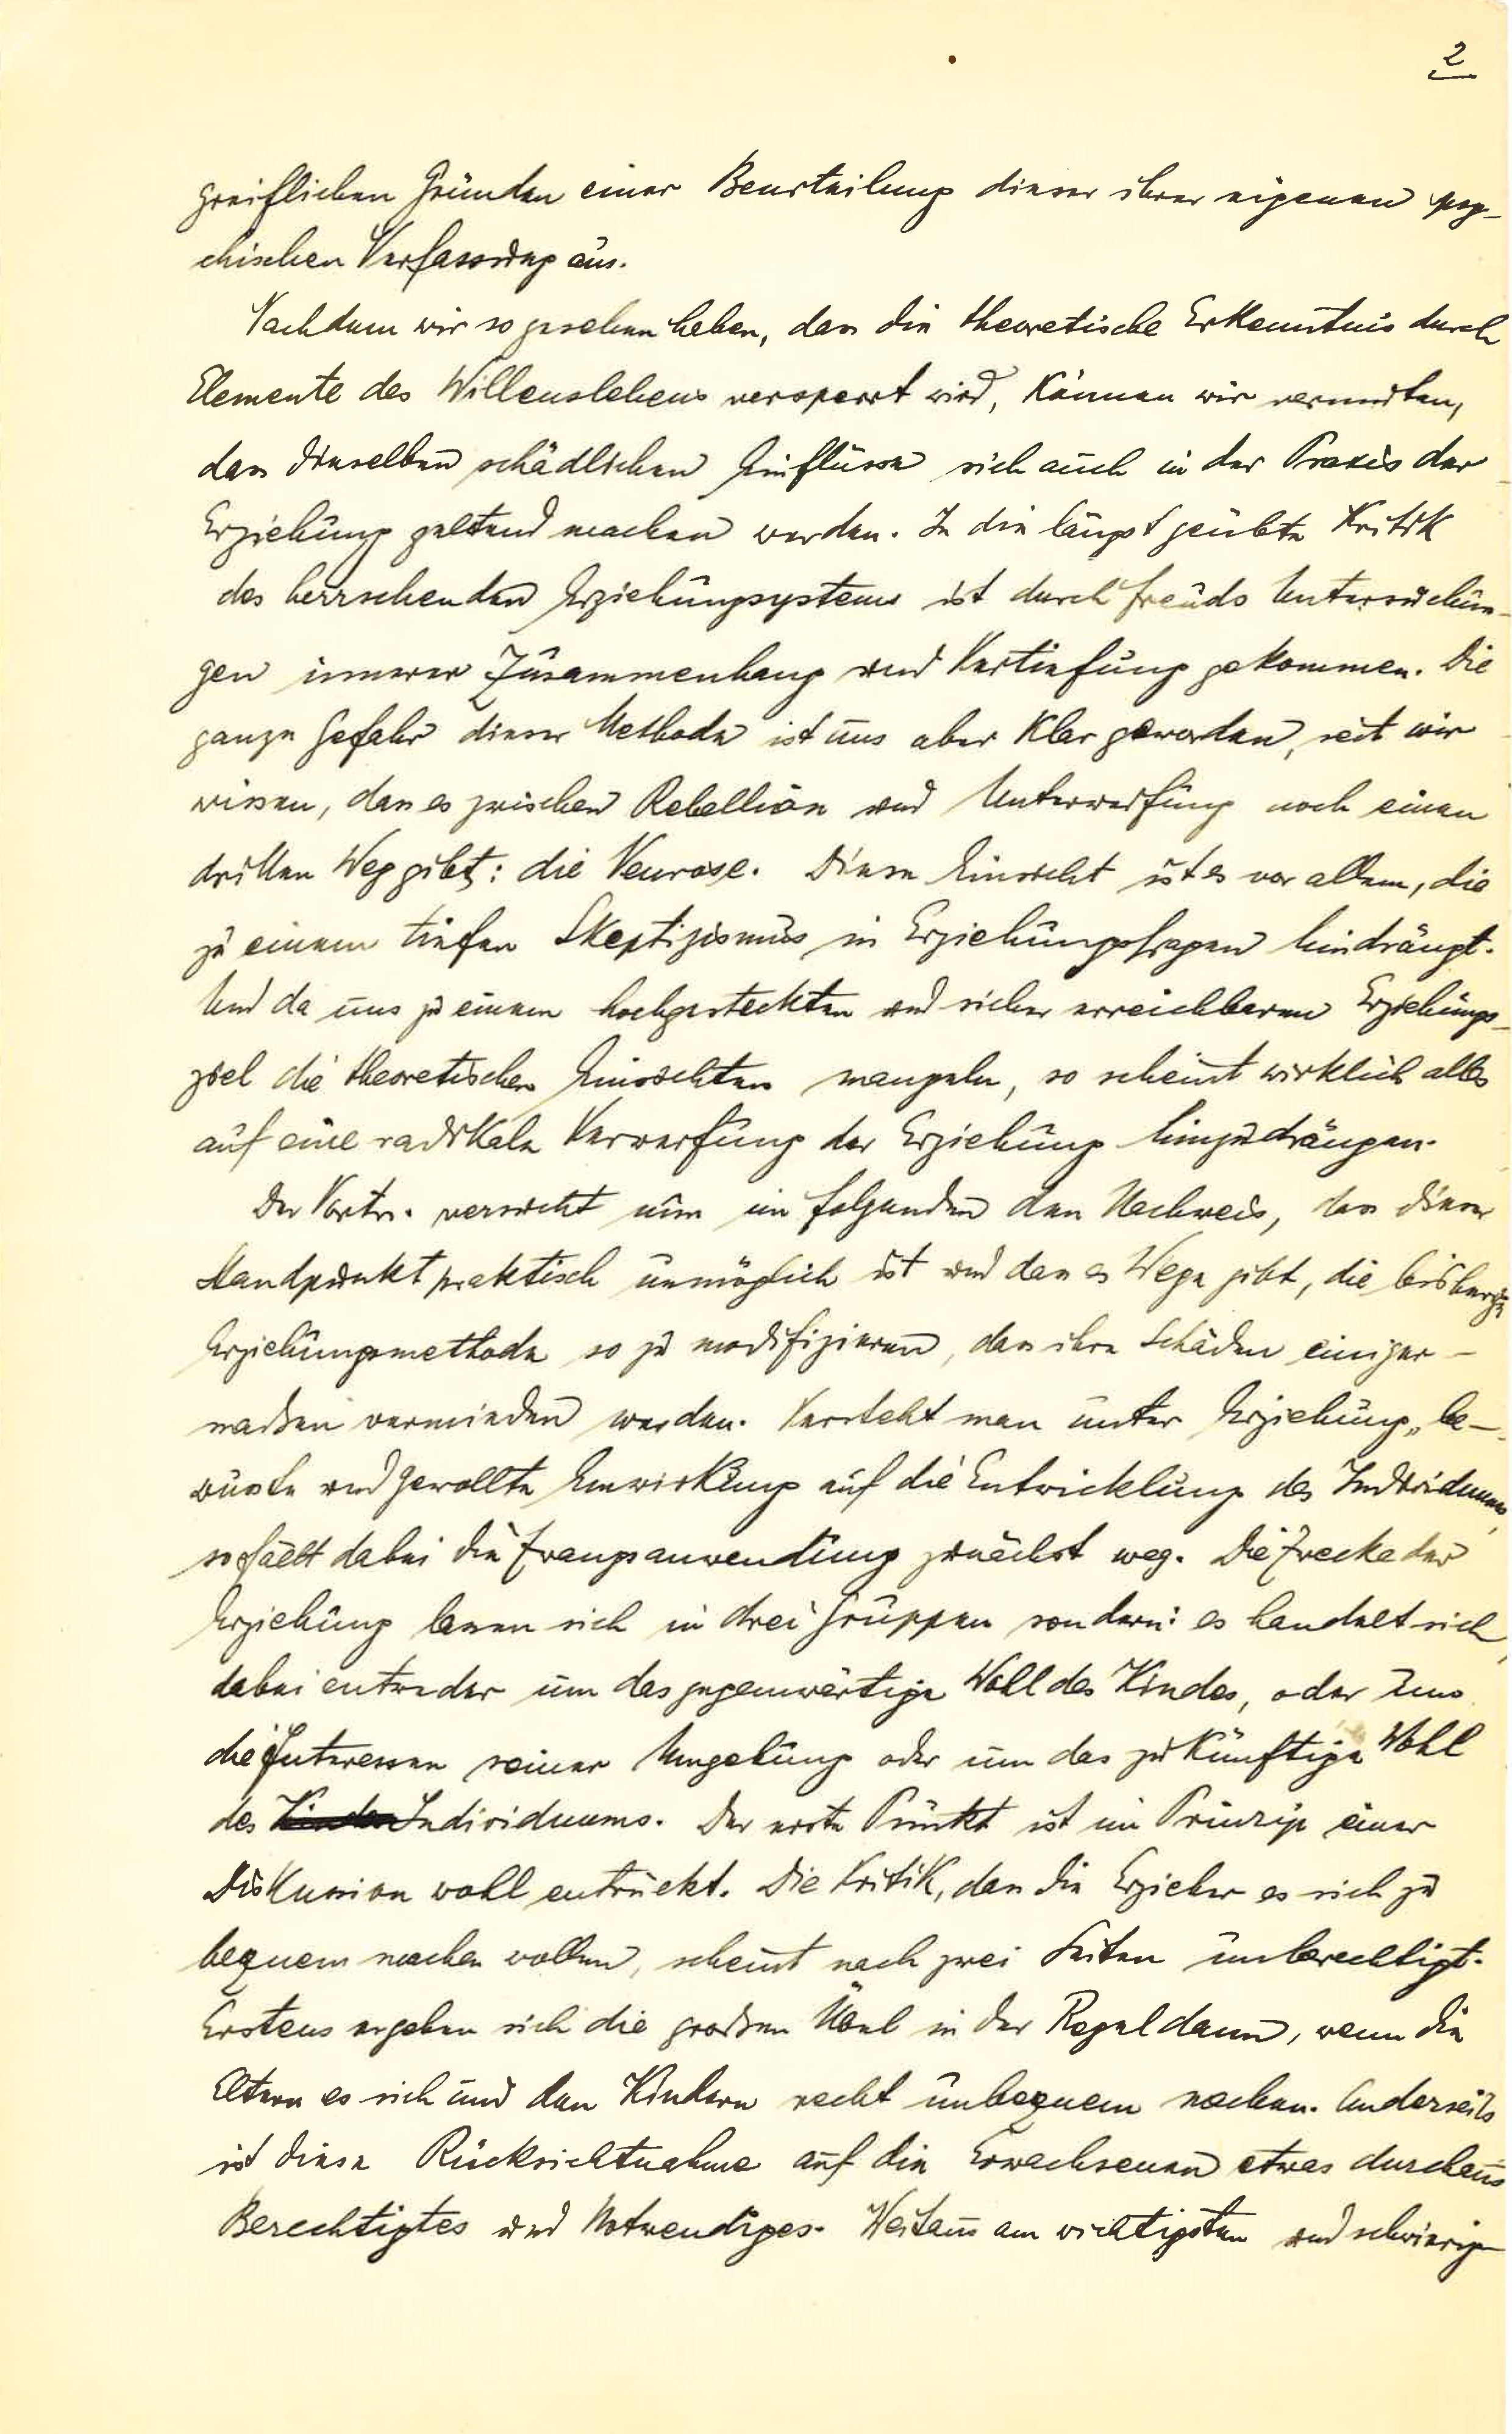 2
greiflichen Gründen einer Beurteilung dieser ihrer eigenen psy-
chischen Verfassung aus.
Nachdem wir so gesehen haben, dass die theoretische Erkenntnis durch
Elemente des Willenslebens versperrt wird, können wir vermuten,
dass dieselben schädlichen Einflüsse sich auch in der Praxis der
Erziehung geltend machen werden. In die längst geübte Kritik
des herrschenden Erziehungsystems ist durch Freuds Untersuchun-
gen innerer Zusammenhang und Vertiefung gekommen. Die
ganze Gefahr dieser Methode ist uns aber klar geworden, seit wir
wissen, dass es zwischen Rebellion und Unterwerfung noch einen
dritten Weg gibt: die Neurose. Diese Einsicht ist es vor allem, die
zu einem tiefen Skeptizismus in Erziehungsfragen hindrängt.
Und da uns zu einem hochgesteckten und sicher erreichbaren Erziehungs-
ziel die theoretischen Einsichten mangeln, so scheint wirklich alles
auf eine radikale Verwerfung der Erziehung hinzudrängen.
Der Vortr. versucht nun im folgenden den Nachweis, dass dieser
Standpunkt praktisch unmöglich ist und dass es Wege gibt, die bisherige
Erziehungsmethode so zu modifizieren, dass ihre Schäden einiger-
maßen vermieden werden. Versteht man unter Erziehung „be-
wusste und gewollte Einwirkung auf die Entwicklung des Individuums,
so fällt dabei die Zwangsanwendung zunächst weg. Die Zwecke der
Erziehung lassen sich in drei Gruppen sondern: es handelt sich
dabei entweder um das gegenwärtige Wohl des Kindes, oder um
die Interessen seiner Umgebung oder um das zukünftige Wohl
des Kindes Individuums. Der erste Punkt ist im Prinzip einer
Diskussion wohl entrückt. Die Kritik, dass die Erzieher es sich zu
bequem machen wollen, scheint nach zwei Seiten unberechtigt.
Erstens ergeben sich die großen Übel in der Regel dann, wenn die
Eltern es sich und den Kindern recht unbequem machen. Anderseits
ist diese Rücksichtnahme auf die Erwachsenen etwas durchaus
Berechtigtes und Notwendiges. Weitaus am wichtigsten und schwierig